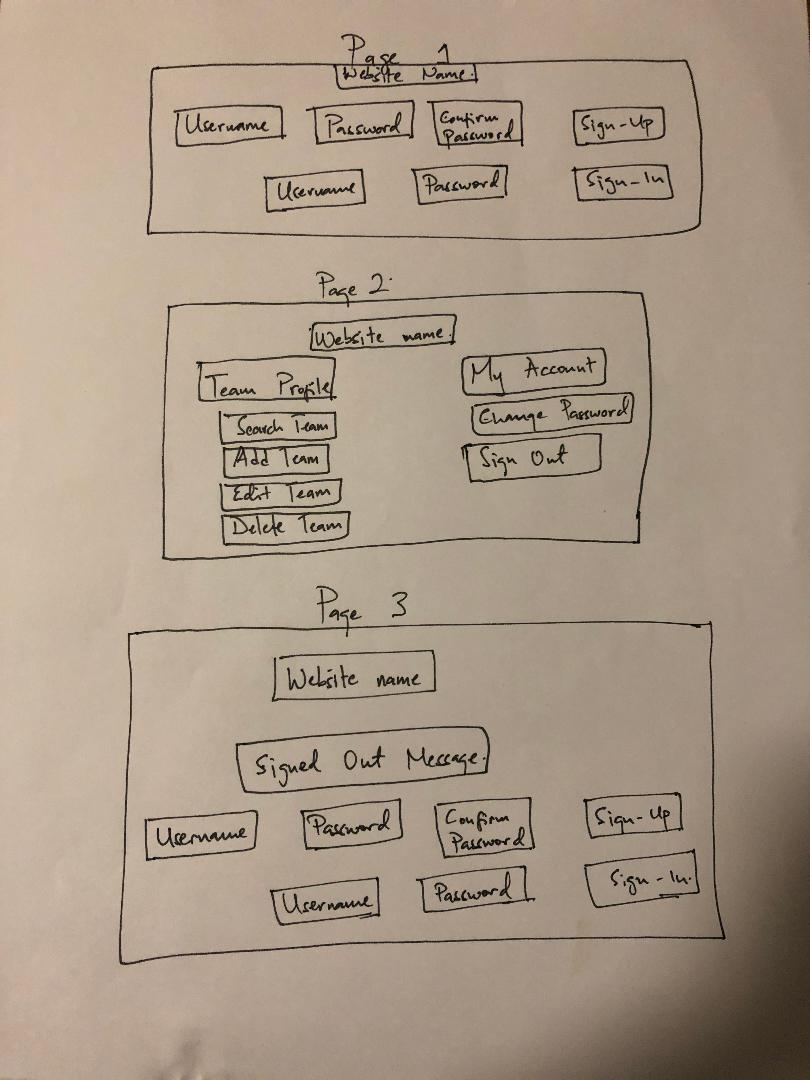 Page 1
Website Name.
Username Password Confirm Password Sign-Up
Username Password Sign-In
Page 2.
Website name.
Team Profile
My Account
Search Team
Change Password
Add Team
Sign Out
Edit Team
Delete Team
Page 3
Website name
Signed Out Message.
Username Password Confirm Password Sign-Up
Username Password Sign-In.